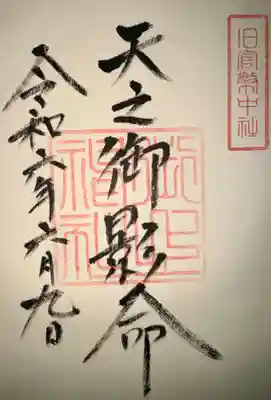 旧官幣中社
天之御影命
令和六年六月九日
御上神社